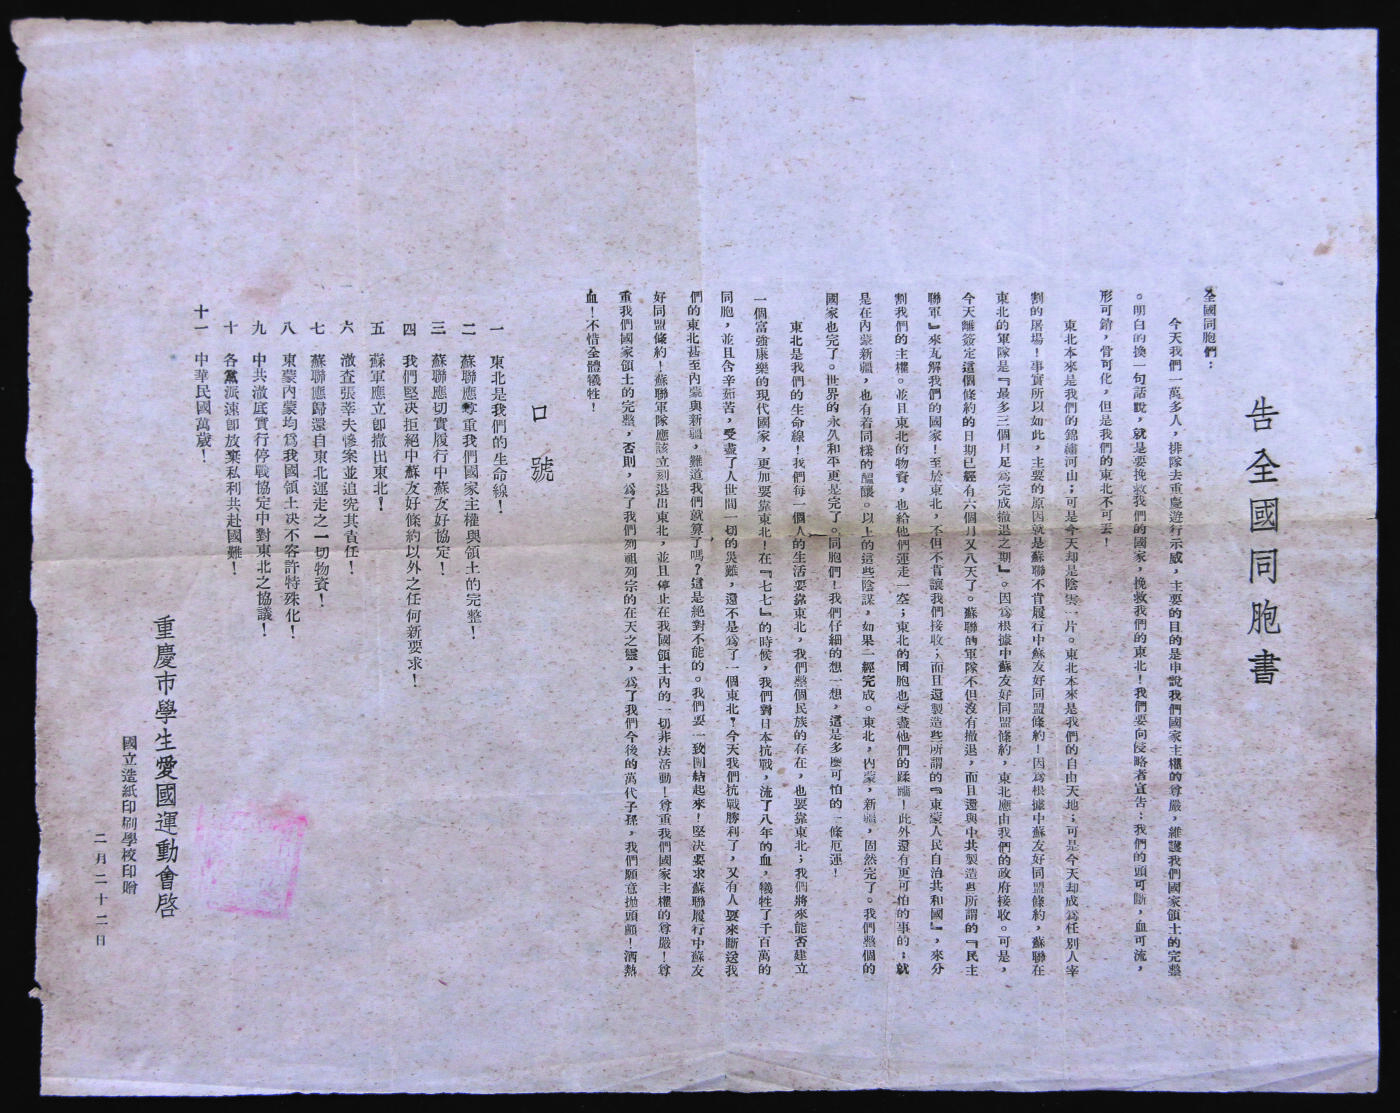 告全國同胞書
全國同胞們：
今天我們一萬多人，排隊去重慶遊行示威，主要的目的是申說我們國家主權的尊嚴，維護我們國家領土的完整
。明白的換一句話說，就是要挽救我們的國家，挽救我們的東北！我們要向侵略者宣告：我們的頭可斷，血可流，
形可銷，骨可化，但是我們的東北不可丟！
東北本來是我們的錦繡河山；可是今天却是陰雲一片。東北本來是我們的自由天地；可是今天却成爲任別人宰
割的屠場！事實所以如此，主要的原因就是蘇聯不肯履行中蘇友好同盟條約！因爲根據中蘇友好同盟條約，蘇聯在
東北的軍隊是『最多三個月足爲完成撤退之期』。因爲根據中蘇友好同盟條約，東北應由我們的政府接收。可是，
今天離簽定這個條約的日期已經有六個月又八天了。蘇聯的軍隊不但沒有撤退，而且還與中共製造與所謂的『民主
聯軍』來瓦解我們的國家！至於東北，不但不肯讓我們接收；而且還製造些所謂的『東蒙人民自治共和國』，來分
割我們的主權。並且東北的物資，也給他們運走一空；東北的同胞也受盡他們的蹂躪！此外還有更可怕的事的：就
是在內蒙新疆，也有着同樣的醞釀。以上的這些陰謀，如果一經完成。東北，內蒙，新疆，固然完了。我們整個的
國家也完了。世界的永久和平更是完了。同胞們！我們仔細的想一想，這是多麼可怕的一條厄運！
東北是我們的生命線！我們每一個人的生活要靠東北，我們整個民族的存在，也要靠東北；我們將來能否建立
一個富強康樂的現代國家，更加要靠東北！在『七七』的時候，我們對日本抗戰，流了八年的血，犧牲了千百萬的
同胞，並且含辛茹苦，受盡了人世間一切的災難，還不是爲了一個東北？今天我們抗戰勝利了，又有人要來斷送我
們的東北甚至內蒙與新疆，難道我們就算了嗎？這是絕對不能的。我們要一致團結起來！堅決要求蘇聯履行中蘇友
好同盟條約！蘇聯軍隊應該立刻退出東北，並且停止在我國領土內的一切非法活動！尊重我們國家主權的尊嚴！尊
重我們國家領土的完整，否則，爲了我們列祖列宗的在天之靈，爲了我們今後的萬代子孫，我們願意拋頭顱！洒熱
血！不惜全體犧牲！
口號
一　東北是我們的生命線！
二　蘇聯應尊重我們國家主權與領土的完整！
三　蘇聯應切實履行中蘇友好協定！
四　我們堅决拒絕中蘇友好條約以外之任何新要求！
五　蘇軍應立卽撤出東北！
六　澈查張莘夫慘案並追究其責任！
七　蘇聯應歸還自東北運走之一切物資！
八　東蒙內蒙均爲我國領土决不容許特殊化！
九　中共澈底實行停戰協定中對東北之協議！
十　各黨派速卽放棄私利共赴國難！
十一　中華民國萬歲！
重慶市學生愛國運動會啓
國立造紙印刷學校印贈
二月二十二日